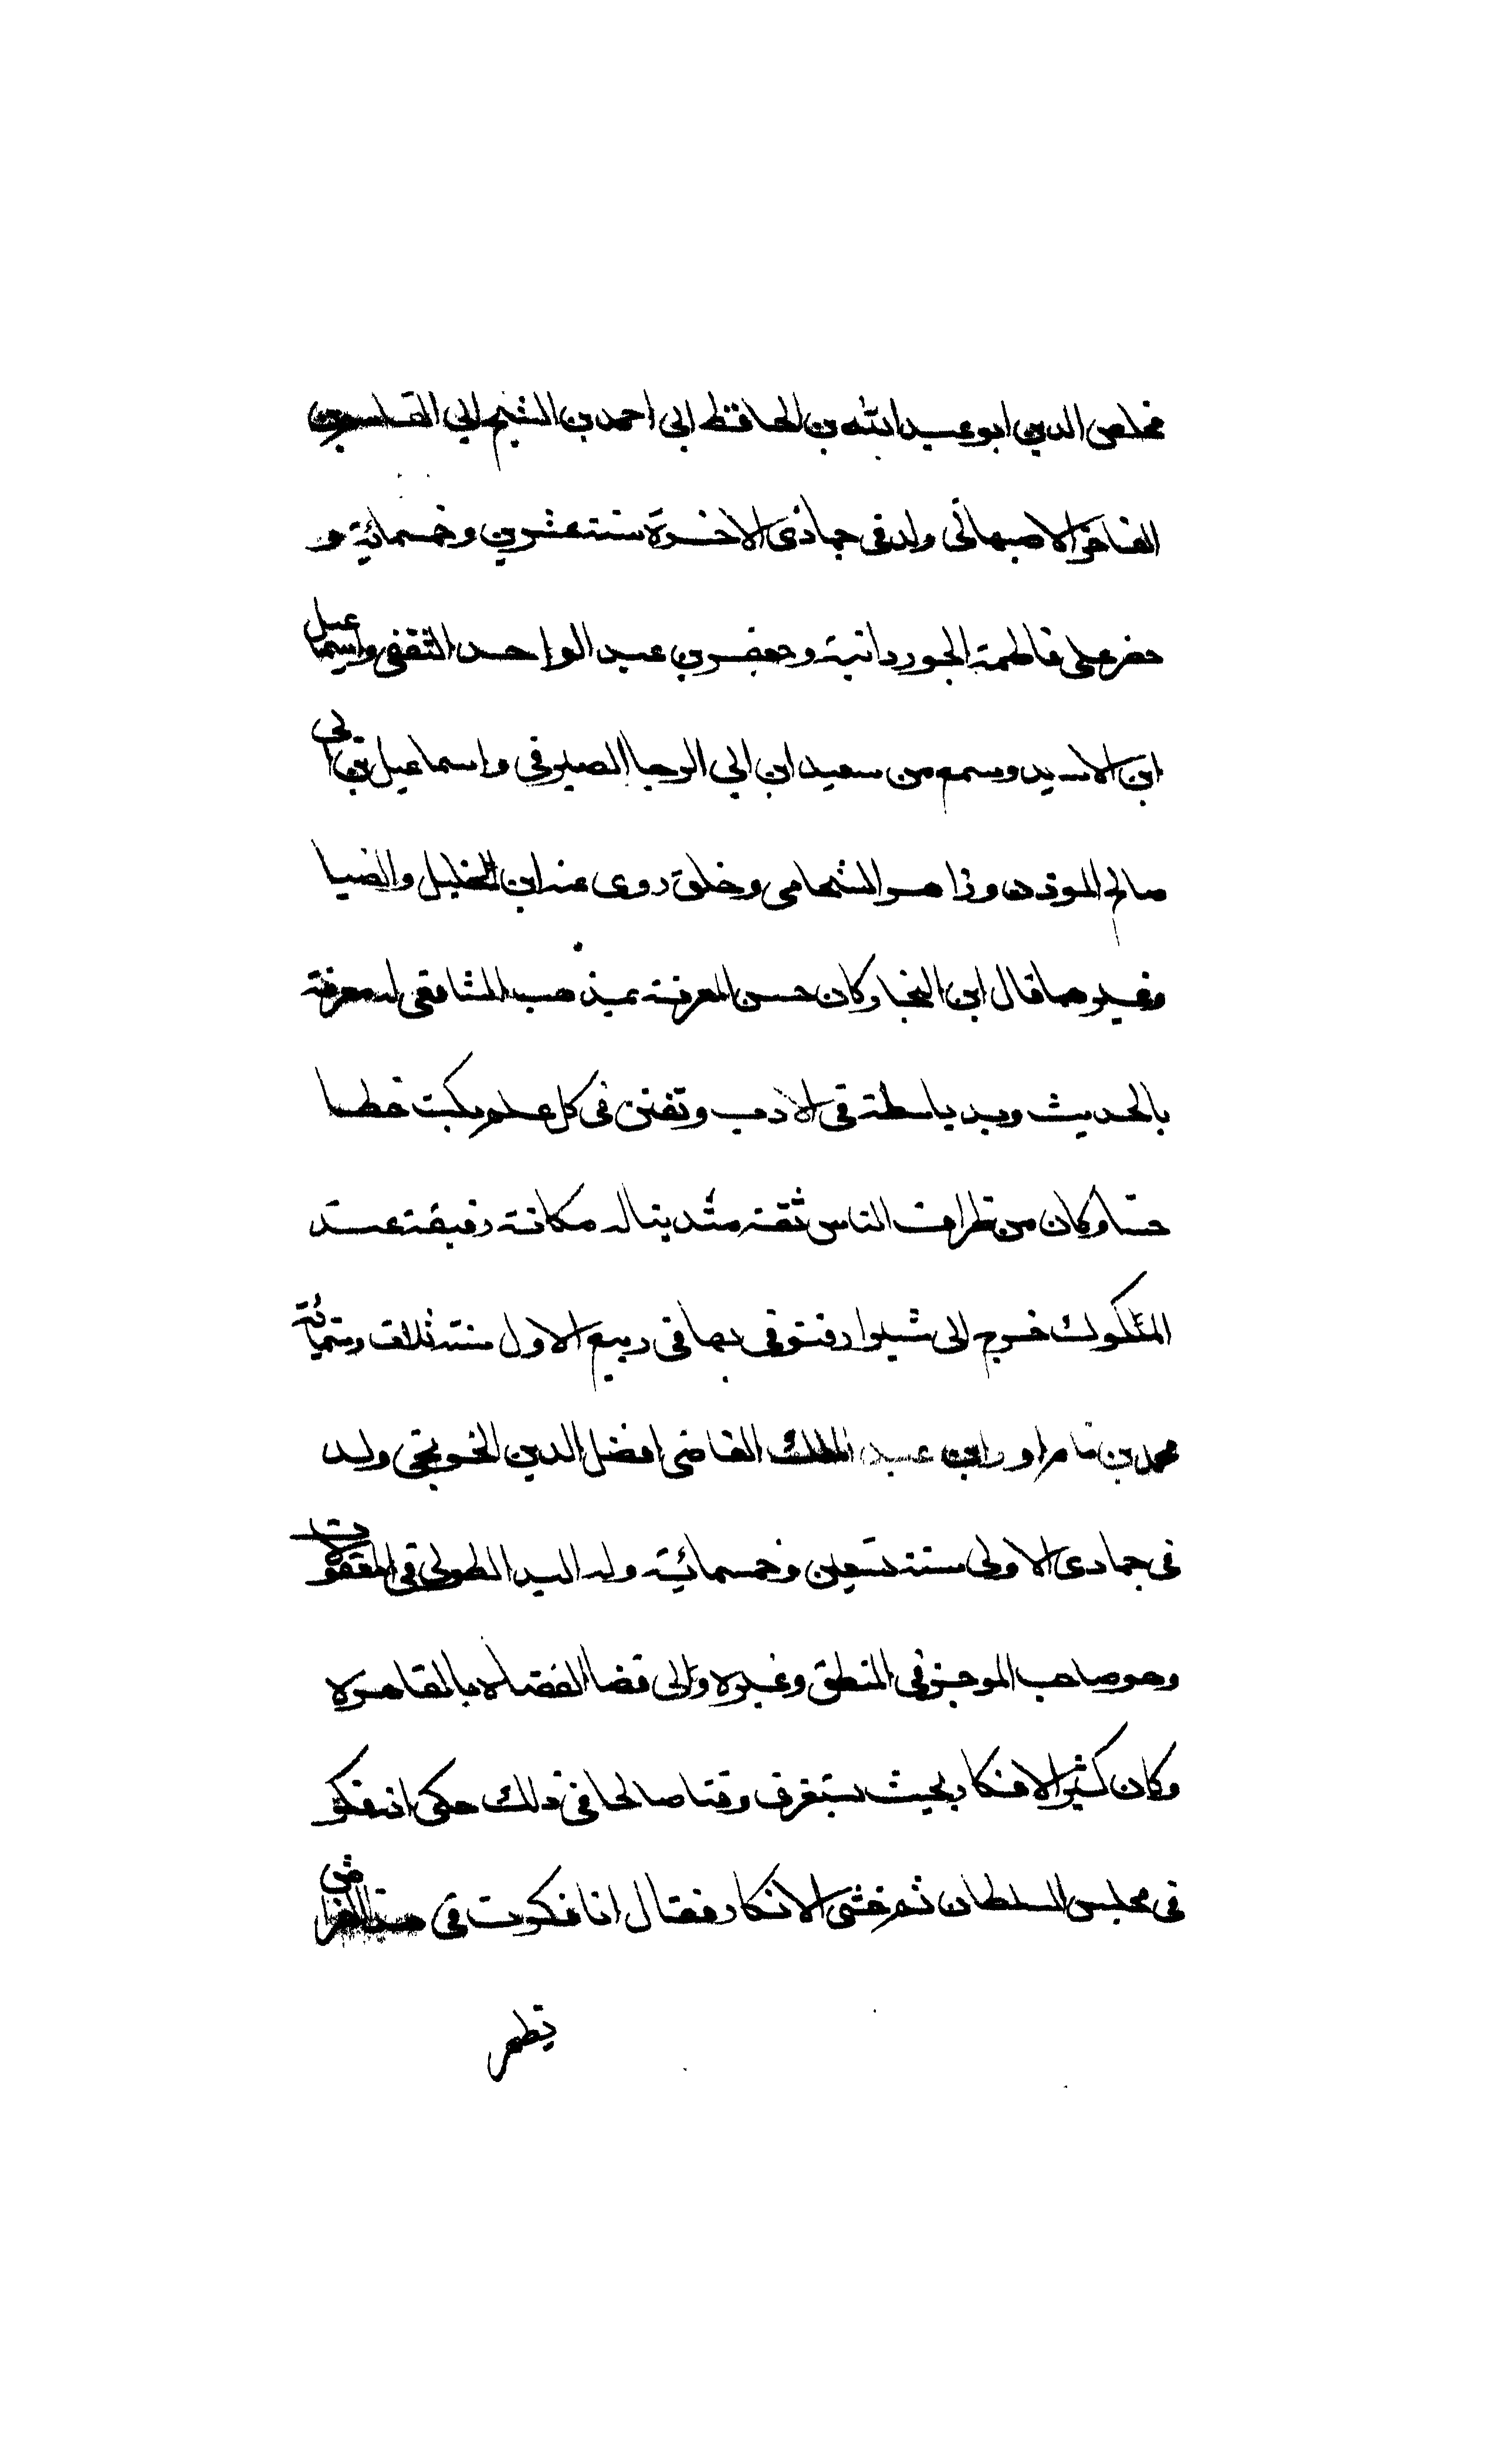 مخلص الدين ابو عبد الله بن الحافظ ابى احمد بن الشيخ ابي القاسم بن
الفاخر الاصبهانى ولد فى جمادى الاخرة سنة عشرين وخمسمائة و
حضر على فاطمة الجوردانية وجعفر بن عبد الواحد الثقفى واسماعيل
ابن الاسيد وسمع من سعيد ابن ابي الرجا الصيرفى واسماعيل بن ابى
صالح الموذن وزاهر الشحامى وخلق روى عنه ابن الخليل والضيا
وغيرهما قال ابن النجار وكان حسن المعرفة بمذهب الشافعى له معرفة
بالحديث ويد باسطة فى الادب وتفنن فى كل علم يكبت خطا
حسنا وكان من ظراف الناس ثقة متدينا له مكانة رفيعة عند
الملوك خرج الى شيراز فتوفى بها فى ربيع الاول سنة ثلاث وستمائة
محمد بن ناماور ابن عبد الملك القاضى افضل الدين الخونجى ولد
فى جمادى الاولى سنة تسعين وخمسمائية وله اليد الطولى فى المعقولات
وهو صاحب الموجز فى المنطق وغيره وولى قضا القضاه بالقاهره
وكان كثير الافكار بحيث يستغرف وقتا صالحا فى ذلك حكى انه فكر
فى مجلس السلطان ثم خشى الانكار فقال انا فكرت فى هذا الفراش
تظهر